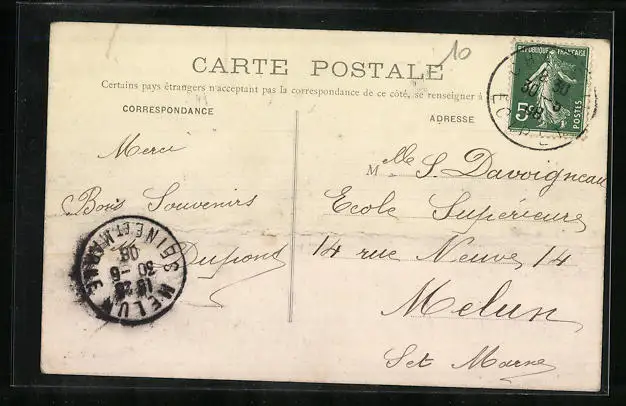 10
CARTE POSTALE
Certains pays étrangers n'acceptant pas la correspondance de ce côté, se renseigner à
CORRESPONDANCE
ADRESSE
REPUBLIQUE FRANÇAISE
5c
POSTES
30
Merci
Bons Souvenirs
Dupont
Mlle S. Davoigneau
Ecole Supérieure
14 rue Neuve, 14
Melun
Set Marne
MELUN
SEINE ET MARNE
30-6
08